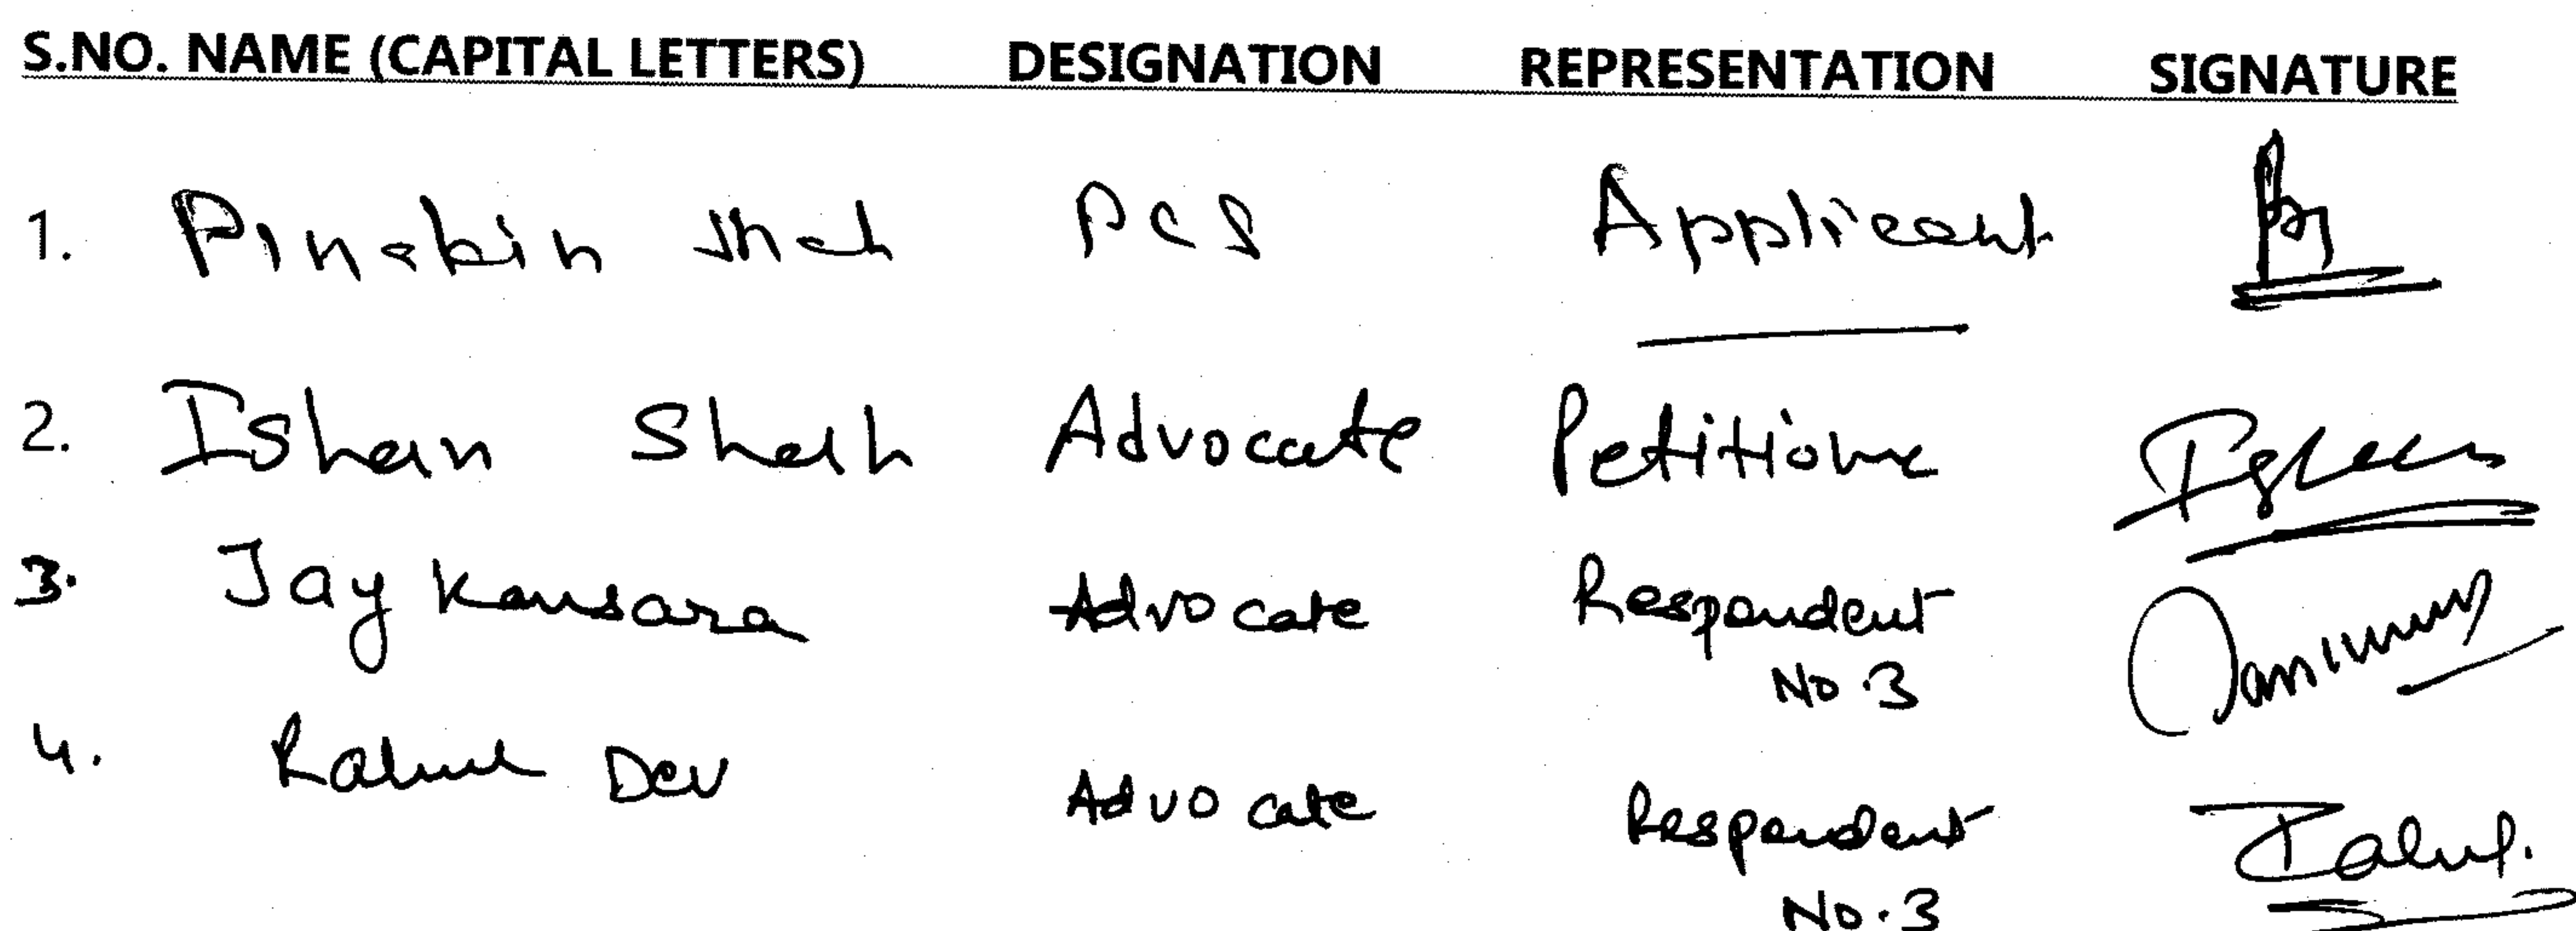 S.NO. NAME (CAPITAL LETTERS) DESIGNATION REPRESENTATION SIGNATURE
1. Pinakin Shah PCS Applicant
2. Ishan Shah Advocate Petitione Ishan
3. Jay Kansara Advocate Respondent
No.3
4. Rahul Dev Advocate Respondent Rahul.
No.3